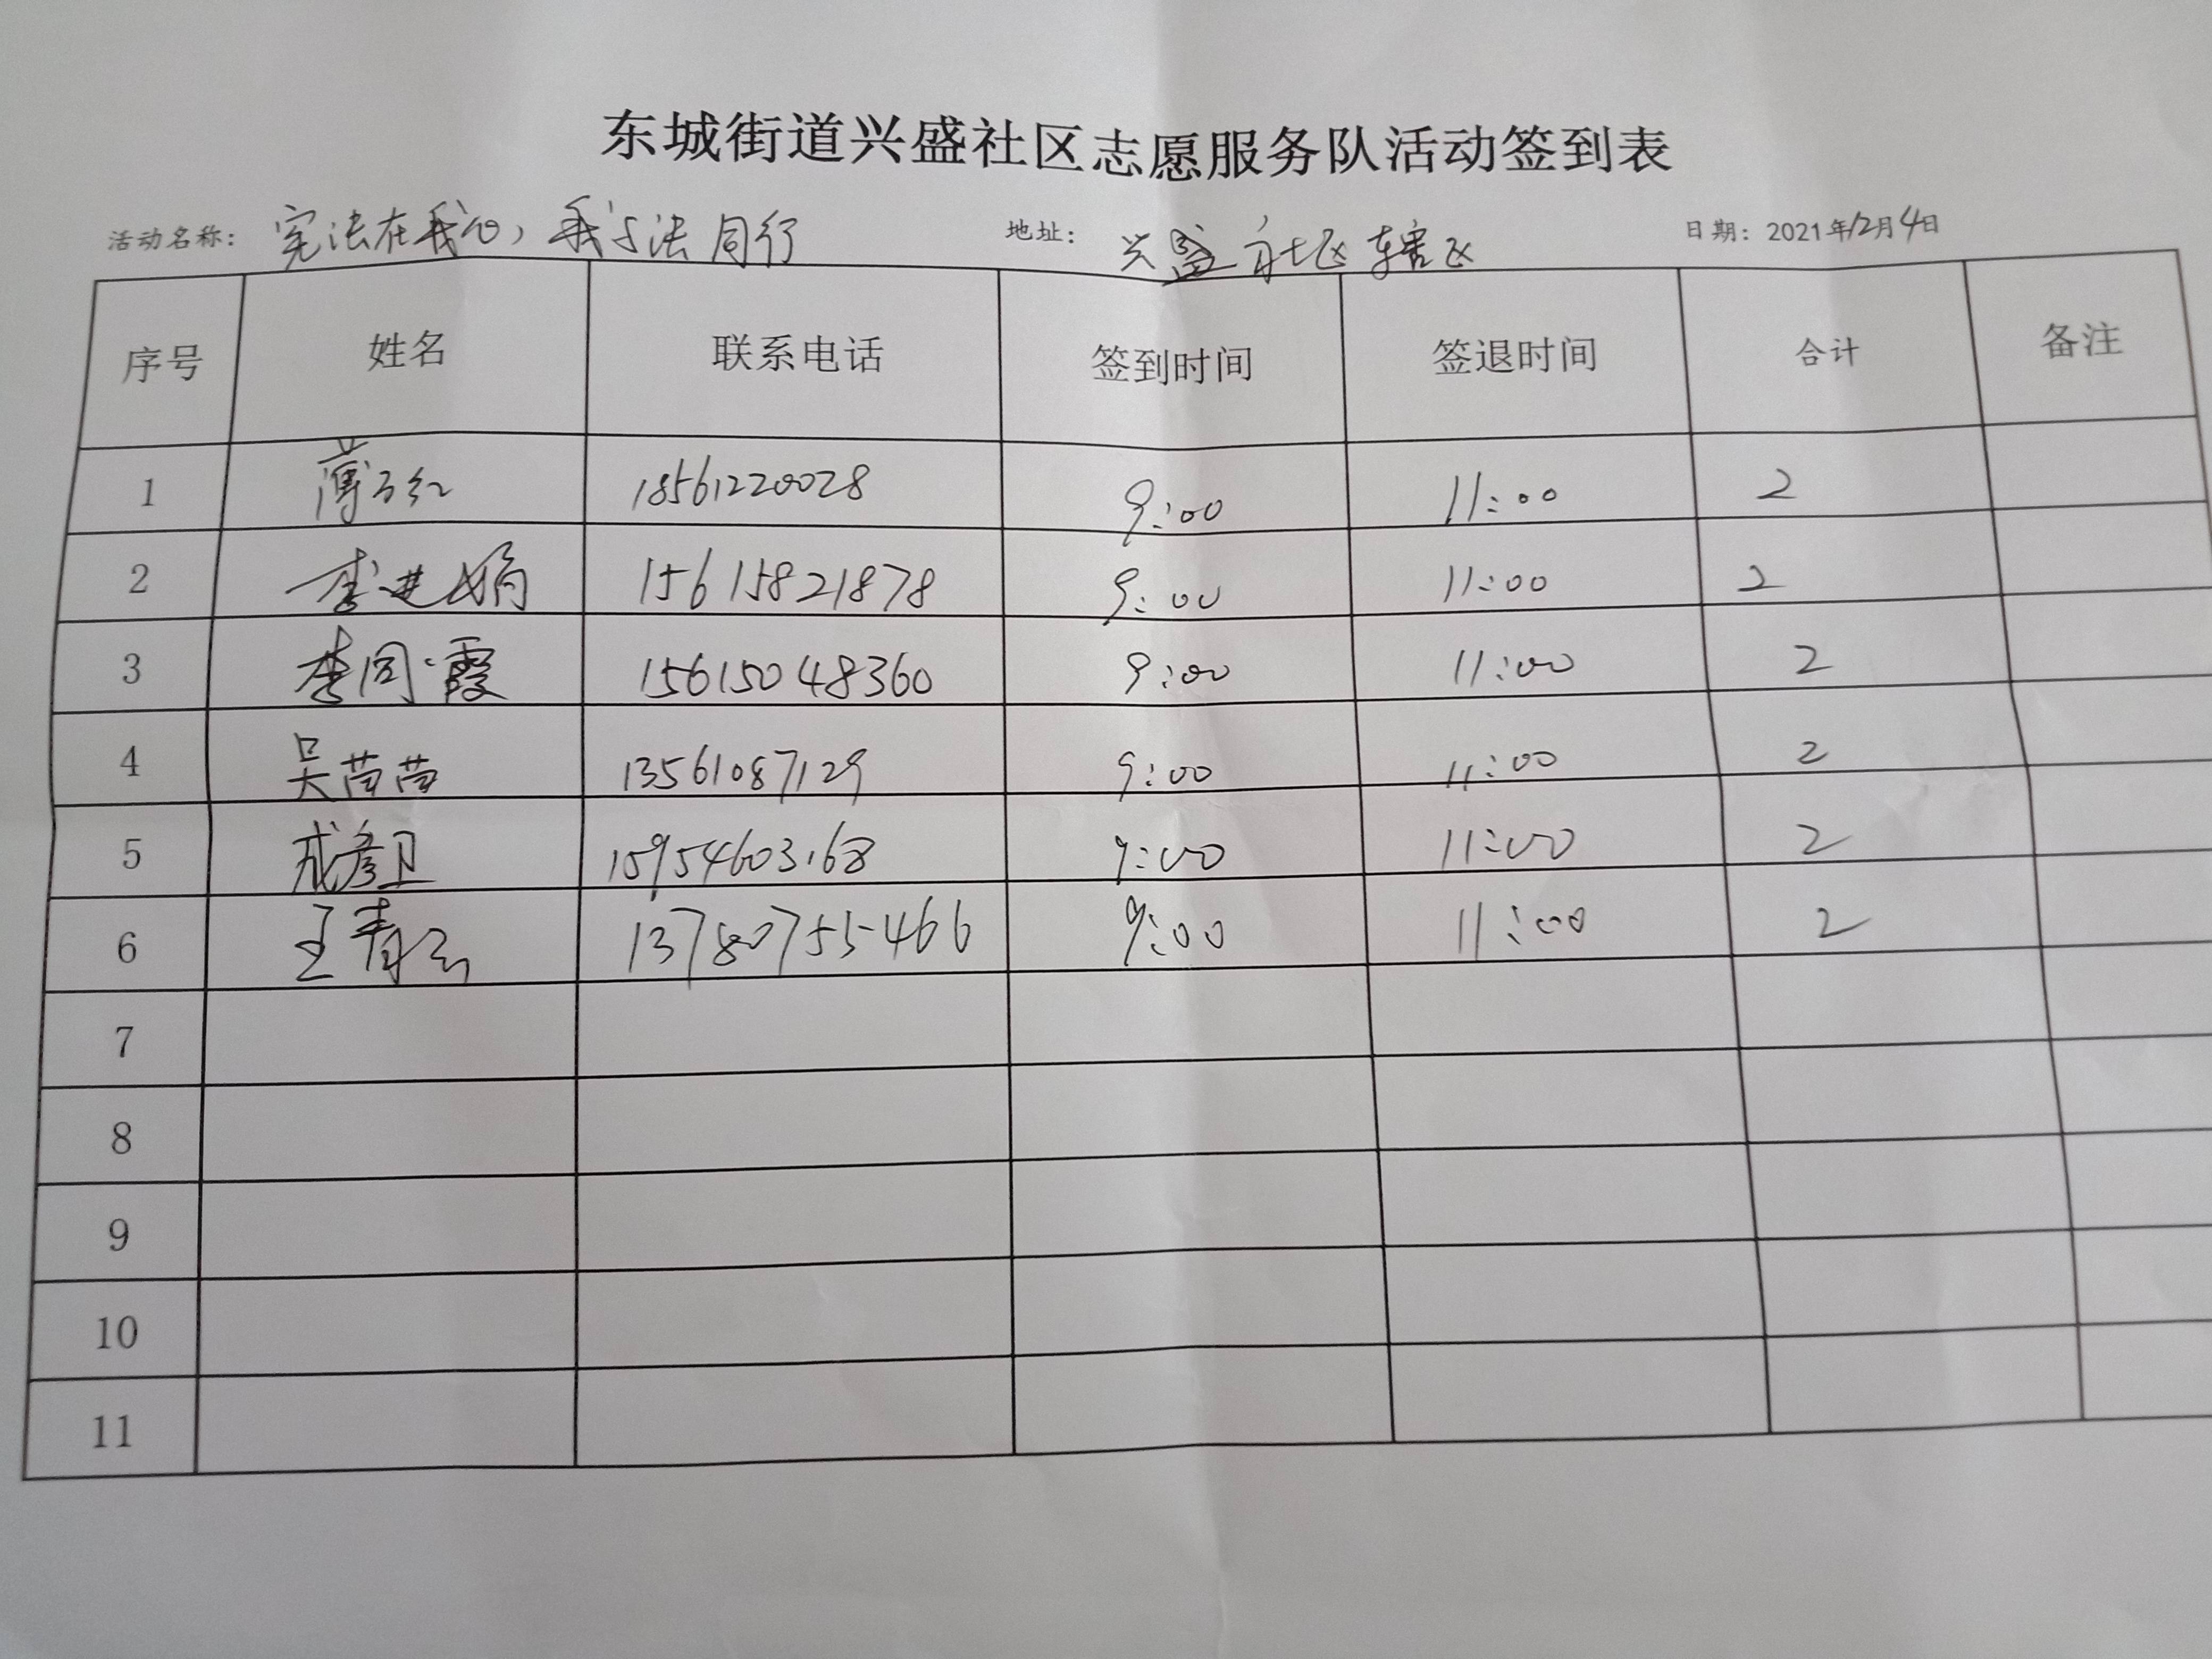 东城街道兴盛社区志愿服务队活动签到表
活动名称: 宪法在我心，我与法同行 地址: 兴盛社区辖区 日期: 2021年12月4日
序号 姓名 联系电话 签到时间 签退时间 合计 备注
1 薄 红 18561220028 9:00 11:00 2
2 李进娟 15615821878 9:00 11:00 2
3 李同霞 15615048360 9:00 11:00 2
4 吴苗苗 13561087129 9:00 11:00 2
5 成彦卫 15954603168 9:00 11:00 2
6 王青云 13780755466 9:00 11:00 2
7
8
9
10
11